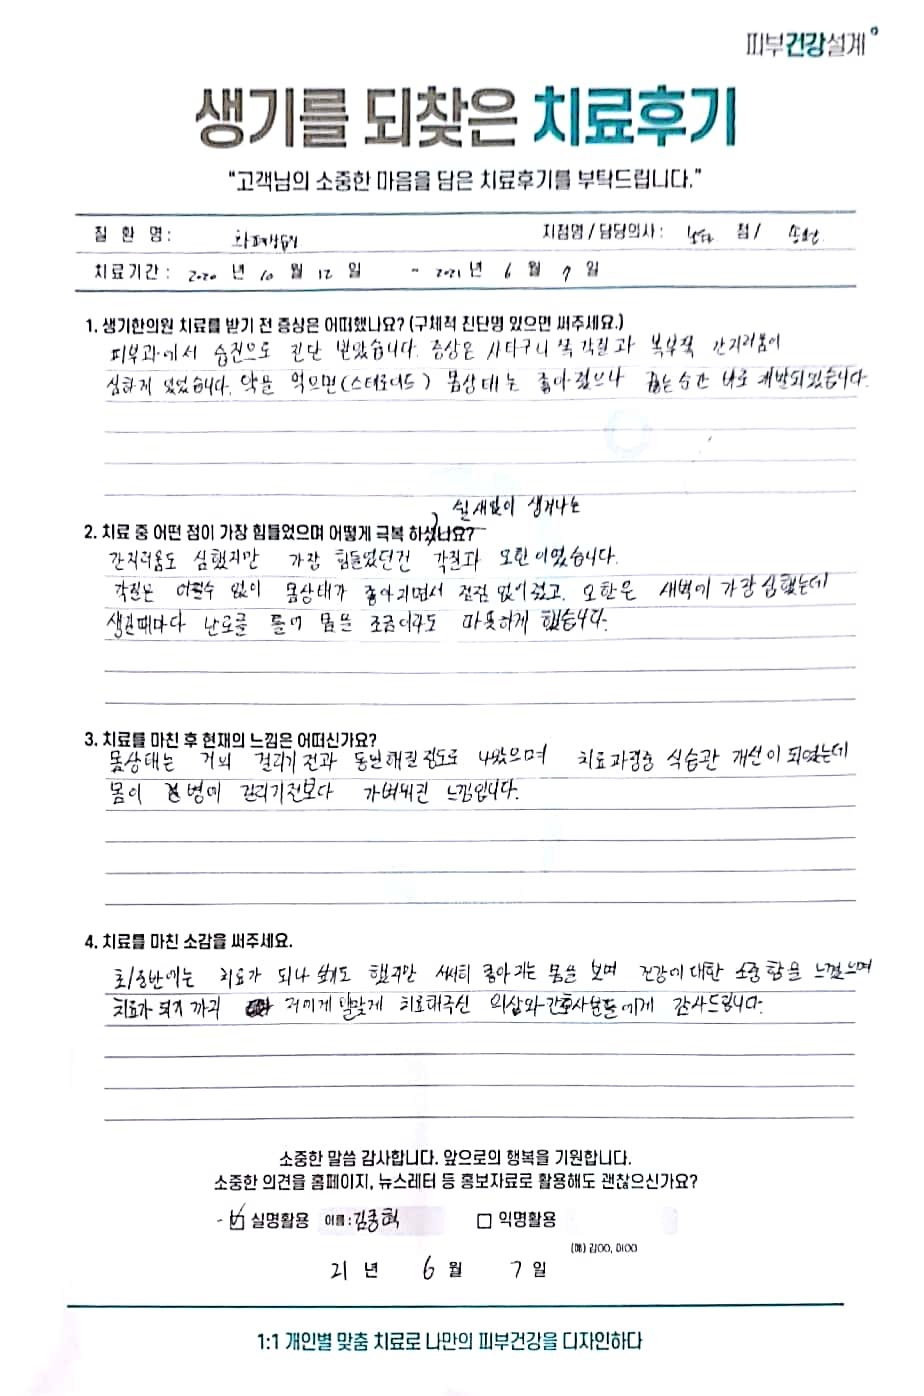 피부건강설계
생기를 되찾은 치료후기
"고객님의 소중한 마음을 담은 치료후기를 부탁드립니다."
질 환 명 : 지점명 / 담당의사 : 점 /
치료기간 : 2020 년 10 월 12 일 ~ 2021 년 6 월 7 일
1. 생기한의원 치료를 받기 전 증상은 어떠했나요? (구체적 진단명 있으면 써주세요.)
피부과에서 습진으로 진단 받았습니다. 증상은 사타구니 쪽 각질과 복부쪽 간지러움이
심하게 있었습니다. 약을 먹으면(스테로이드) 몸상태는 좋아졌으나 끊는순간 바로 재발되었습니다.
쉴새없이 생겨나는
2. 치료 중 어떤 점이 가장 힘들었으며 어떻게 극복 하셨나요?
간지러움도 심했지만 가장 힘들었던건 각질과 오한이였습니다.
각질은 어쩔수 없이 몸상태가 좋아지면서 점점 없어졌고, 오한은 새벽이 가장 심했는데
생길때마다 난로를 틀어 몸을 조금이라도 따뜻하게 했습니다.
3. 치료를 마친 후 현재의 느낌은 어떠신가요?
몸상태는 거의 걸리기 전과 동일해진 정도로 나았으며 치료과정중 식습관 개선이 되었는데
몸이 병에 걸리기전보다 가벼워진 느낌입니다.
4. 치료를 마친 소감을 써주세요.
초/중반에는 치료가 되나 싶기도 했지만 서서히 좋아지는 몸을 보며 건강에 대한 소중함을 느꼈으며
치료가 되기 까지 저에게 알맞게 치료해주신 의사와 간호사분들에게 감사드립니다.
소중한 말씀 감사합니다. 앞으로의 행복을 기원합니다.
소중한 의견을 홈페이지, 뉴스레터 등 홍보자료로 활용해도 괜찮으신가요?
실명활용 이름 : 김종혁 익명활용
(예) 김OO, 이OO
21 년 6 월 7 일
1:1 개인별 맞춤 치료로 나만의 피부건강을 디자인하다